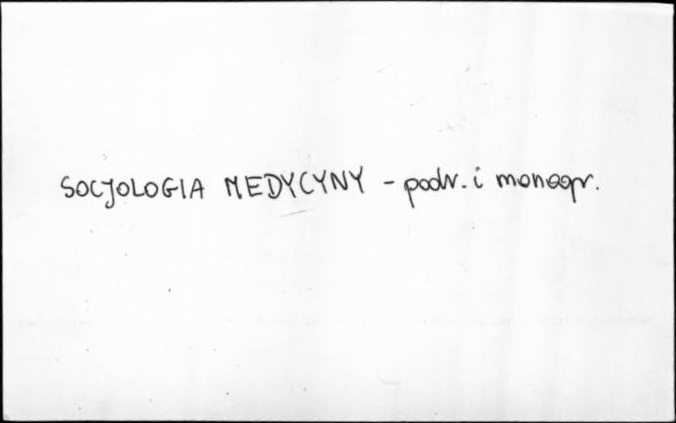 SOCJOLOGIA MEDYCYNY - podr. i monogr.